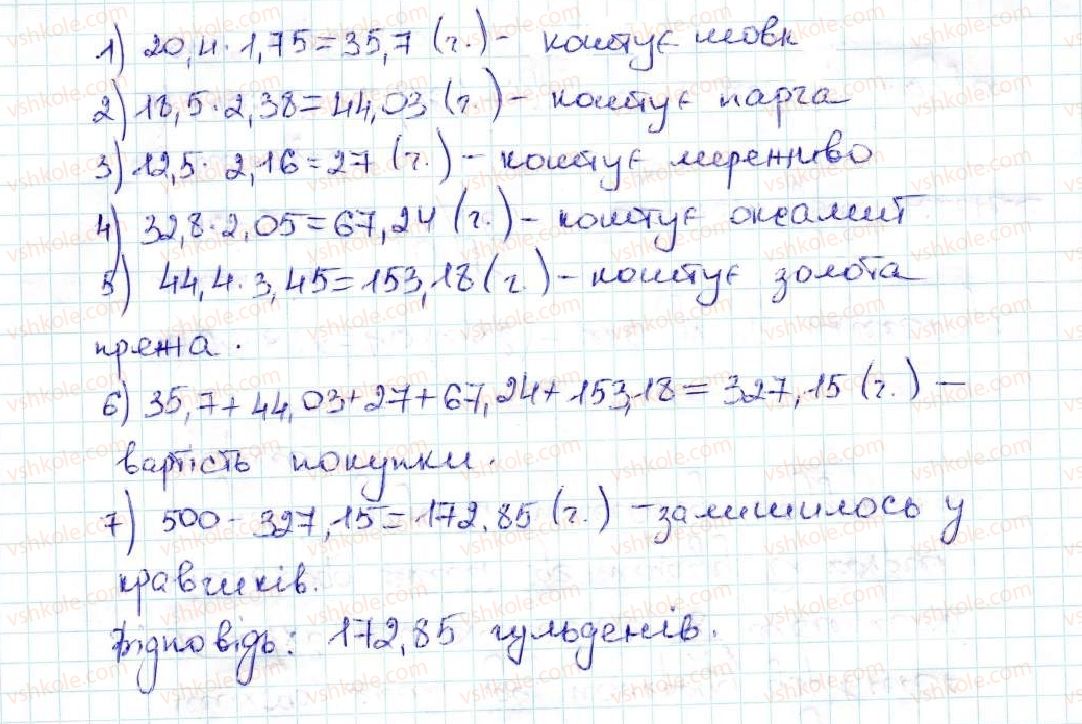 1) 20,4 · 1,75 = 35,7 (г.) – коштує шовк
2) 18,5 · 2,38 = 44,03 (г.) – коштує парча
3) 12,5 · 2,16 = 27 (г.) – коштує мереживо
4) 32,8 · 2,05 = 67,24 (г.) – коштує оксамит
5) 44,4 · 3,45 = 153,18 (г.) – коштує золота
пряжа.
6) 35,7 + 44,03 + 27 + 67,24 + 153,18 = 327,15 (г.) –
вартість покупки.
7) 500 – 327,15 = 172,85 (г.) – залишилось у
кравчиків.
Відповідь: 172,85 гульденів.
vshkole.com